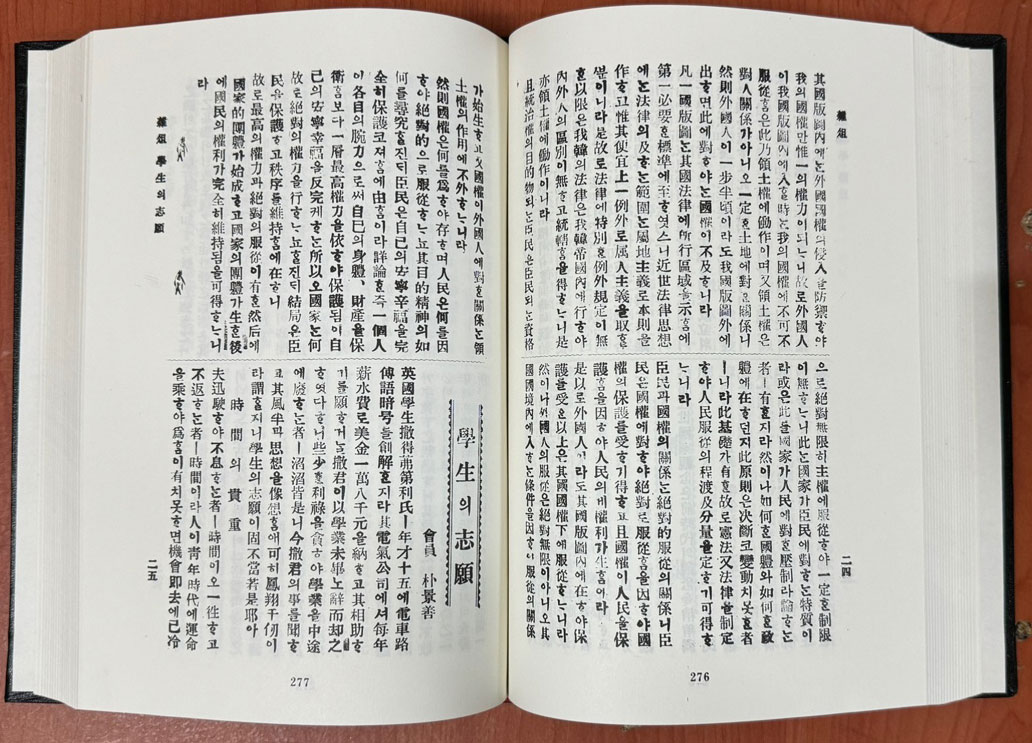 雜俎
其國版圖內에ᄂᆞᆫ外國國權의侵入을防禦ᄒᆞ야
我의國權만惟一의權力이되ᄂᆞ니故로外國人
이我國版圖內에入ᄒᆞᆯ時ᄂᆞᆫ我의國權에不可不
服從ᄒᆞᆷ은此乃領土權에働作이며又領土權은
對人關係가아니오一定ᄒᆞᆫ土地에對ᄒᆞᆫ關係니
然則外國人이一步半頃이라도我國版圖外에
出ᄒᆞ면此에對ᄒᆞ야ᄂᆞᆫ國權이不及ᄒᆞᄂᆞ니라
凡一國版圖ᄂᆞᆫ其國法律에所行區域을示ᄒᆞᆷ에
第一必要ᄒᆞᆫ標準에至ᄒᆞ엿스니近世法律思想
에ᄂᆞᆫ法律의及ᄒᆞᄂᆞᆫ範圍ᄂᆞᆫ屬地主義로本則을
作ᄒᆞ고惟其便宜上一例外로属人主義을取ᄒᆞᆯ
ᄲᅮᆫ이니라是故로法律에特別ᄒᆞᆫ例外規定이無
ᄒᆞᆫ以限은我韓의法律은我韓帝國內에行ᄒᆞ야
內外人의區別이無ᄒᆞ고統轄ᄒᆞᆷ을得ᄒᆞᄂᆞ니是
亦領土權에働作이니라
且統治權의目的物되ᄂᆞᆫ臣民은臣民되ᄂᆞᆫ資格
으로絕對無限히主權에服從ᄒᆞ야一定ᄒᆞᆫ制限
이無ᄒᆞᄂᆞ니此ᄂᆞᆫ國家가臣民에對ᄒᆞᄂᆞᆫ特質이
라或은此를國家가人民에對ᄒᆞᆫ壓制라論ᄒᆞᄂᆞᆫ
者ㅣ有ᄒᆞᆯ지라然이나如何ᄒᆞᆫ國體와如何ᄒᆞᆫ政
體에在ᄒᆞ던지此原則은次斷코變動치못ᄒᆞᆯ者
ㅣ니라此基礎가有ᄒᆞᆫ故로憲法又法律을制定
ᄒᆞ야人民服從의程渡及分量을定ᄒᆞ기可得ᄒᆞ
ᄂᆞ니라
臣民과國權의關係ᄂᆞᆫ絕對的服從의關係니臣
民은國權에對ᄒᆞ야絕對로服從ᄒᆞᆷ을因ᄒᆞ야國
權의保護를受ᄒᆞ기得ᄒᆞ고且國權이人民을保
護ᄒᆞᆷ을因ᄒᆞ야人民의凡權利가生ᄒᆞᆷ이라
是以로外國人이라도其國版圖內에在ᄒᆞ야保
護를受ᄒᆞᆫ以上은其國國權下에服從ᄒᆞᄂᆞ니라
然이나外國人의服從은絕對無限이아니오其
國國境內에入ᄒᆞᄂᆞᆫ條件을因ᄒᆞᆷ이服從의關係
二四
276
가始生ᄒᆞ고又國權이外國人에對ᄒᆞᆫ關係ᄂᆞᆫ領
土權의作用에不外ᄒᆞᄂᆞ니라
然則國權은何를爲ᄒᆞ야存ᄒᆞ며人民은何를因
ᄒᆞ야絕對的으로服從ᄒᆞᄂᆞᆫ뇨其目的精神의如
何를尋究ᄒᆞᆯ진ᄃᆡ臣民은自已의安寧幸福을完
全히保護코져ᄒᆞᆷ에由ᄒᆞᆷ이라詳論ᄒᆞᆫ즉一個人
이各自의腕力으로써自已의身體、財產을保
衛ᄒᆞᆷ보다一層最高權力을依ᄒᆞ야保護됨이自
已의安寧幸福을反完케ᄒᆞᄂᆞᆫ所以오國家ᄂᆞᆫ何
故로絕對의權力을行ᄒᆞᄂᆞ뇨ᄒᆞᆯ진ᄃᆡ結局은臣
民을保護ᄒᆞ고秩序를維持ᄒᆞᆷ에在ᄒᆞ니
故로最高의權力과絕對의服從이有ᄒᆞᆫ然后에
國家的團體가始成ᄒᆞ고國家의團體가生ᄒᆞᆫ後
에國民의權利가完全히維持됨을可得ᄒᆞᄂᆞ니
라
學生의志願
會員 朴景善
英國學生撤得茀第利氏ㅣ年才十五에電車路
傳語暗号를創解ᄒᆞᆫ지라其電氣公司에셔每年
薪水費로美金一萬八千元을納ᄒᆞ고其相助ᄒᆞ
기를願ᄒᆞ거ᄂᆞᆯ撤君이以學業未畢노辭而却之
ᄒᆞ엿다ᄒᆞ니些少ᄒᆞᆫ利祿을貪ᄒᆞ야學業을中途
에廢ᄒᆞᄂᆞᆫ者ㅣ滔滔皆是니今撤君의事를聞ᄒᆞ
고其風丰과思想을像想ᄒᆞᆷ애可히鳳翔千仞이
라謂ᄒᆞᆯ지니學生의志願이固不當若是耶아
時間의貴重
夫迅駛ᄒᆞ야不息ᄒᆞᄂᆞᆫ者ㅣ時間이오一徃ᄒᆞ고
不返ᄒᆞᄂᆞᆫ者ㅣ時間이라人이青年時代에運命
을乘ᄒᆞ야爲ᄒᆞᆷ이有치못ᄒᆞ면機會卽去에已冷
雜俎 學生의志願
二五
277